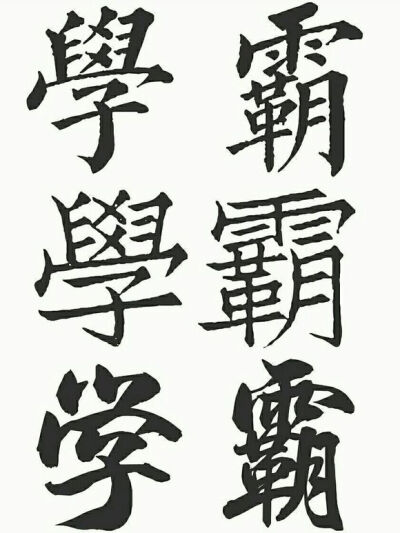 學霸
學霸
学霸